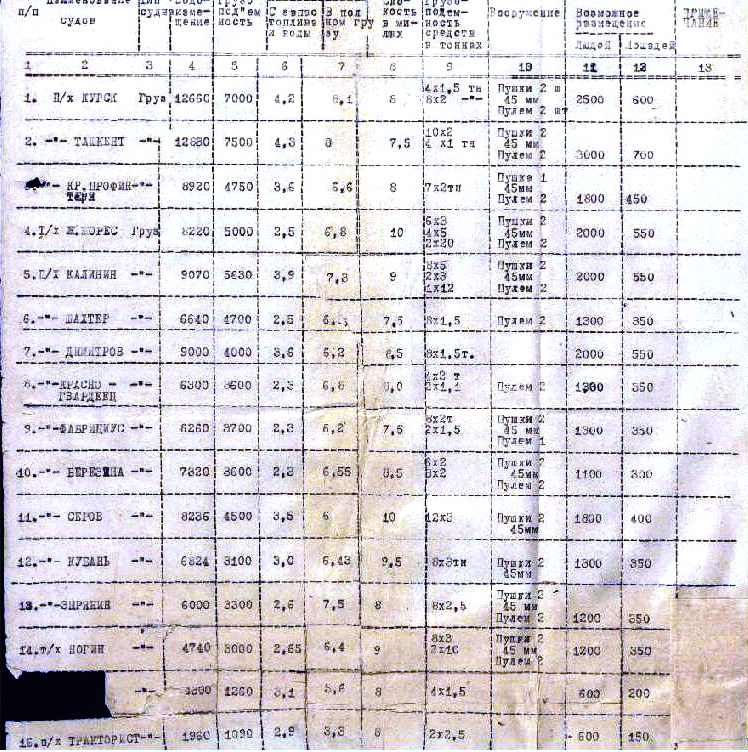 п/п Наименование судов Тип судна Водоизмещение Грузопод"емность С запас топлива и воды В полном грузу Скорость в милях Грузоподъемность средств в тоннах Вооружение Возможное размещение
Людей Лошадей ПРИМЕЧАНИЕ
1 2 3 4 5 6 7 8 9 10 11 12 13
1. П/х КУРСК Груз 12650 7000 4,2 6,1 8 4х1,5 тн 8х2 -"- Пушки 2 ш 45 мм Пулем 2 шт 2500 600
2. -"- ТАШКЕНТ -"- 7500 4,3 8 7,5 10х2 4 х1 тн Пушки 2 45 мм Пулем 2 3000 700
-"- КР.ПРОФИН-ТЕРН -"- 8920 4750 3,6 6,6 8 7х2тн Пушка 1 45мм Пулем 2 1800 450
4.Т/х Ж.ЖОРЕС Груз 8220 5000 2,5 6,8 10 6х3 4х5 2х20 Пушки 2 45мм Пулем 2 2000 550
5.П/х КАЛИНИН -"- 9070 5630 3,9 7,3 9 2х3 1х12 Пушки 2 45мм Пулем 2 2000 550
6.-"- ШАХТЕР -"- 6640 4700 2,5 7,5 8х1,5 Пулем 2 1300 350
7.-"- ДИМИТРОВ -"- 9000 4000 3,6 6,2 8,5 8х1,5т. 2000 550
8.-"-КРАСНО-ГВАРДЕЕЦ -"- 6300 3600 2,3 6,8 2х1,1 Пулем 2 350
9.-"-ФАБРИЦИУС -"- 6260 3700 2,3 6,2 7,5 8х2т 2х1,5 Пушки 2 45 мм Пулем 1 1300 350
10.-"- БЕРЕЗИНА -"- 7320 3600 2,3 6,55 8,5 6х2 Пушки 2 45мм Пулем 2 1100 300
11.-"- СЕРОВ -"- 8236 4500 3,5 6 10 12х3 Пушки 2 45мм 1800 400
12.-"- КУБАНЬ -"- 6824 3100 3,0 6,43 9,5 8х3тн Пушки 2 45мм 1300 350
13.-"-ЗЫРЯНИН -"- 6000 3300 2,6 7,5 8 8х2,5 Пушки 2 45 мм Пулем 2 1200 350
14.т/х НОГИН -"- 4740 3000 2,65 6,4 9 8х3 2х10 Пушки 2 45 мм Пулем 2 1200 350
-"- 1260 3,1 8 4х1,5 600 200
п/х ТРАКТОРИСТ-"- 2,9 3,3 8 2х2,5 600 150